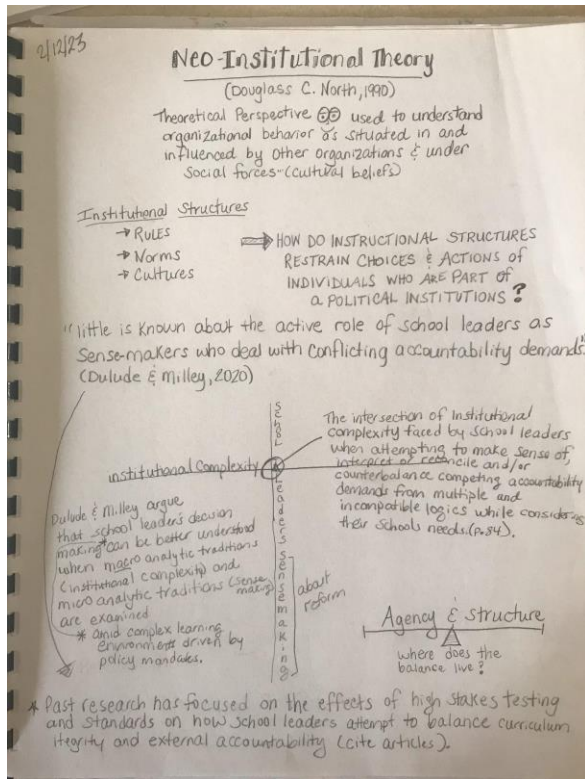 2/12/23
Neo-Institutional Theory
(Douglass C. North, 1990)
Theoretical Perspective used to understand
organizational behavior as situated in and
influenced by other organizations & under
Social forces-(cultural beliefs)
Institutional Structures
→ RULES
→ Norms
→ Cultures
⇒ HOW DO INSTRUCTIONAL STRUCTURES
RESTRAIN CHOICES & ACTIONS OF
INDIVIDUALS WHO ARE PART OF
a POLITICAL INSTITUTIONS?
"little is known about the active role of school leaders as
Sense-makers who deal with conflicting accountability demands"
(Dulude & Milley, 2020)
School Leaders sensemaking
about reform
The intersection of Institutional
complexity faced by school leaders
when attempting to make sense of,
interpret or reconcile and/or
counterbalance competing accountability
demands from multiple and
incompatible logics while
their schools needs.(p.84).
institutional Complexity
Dulude & Milley argue
that school leader's decision
making* can be better understood
when macro analytic traditions
(institutional complexity) and
micro analytic traditions (sense
making)
are examined
* amid complex learning
environments driven by
policy mandates.
Agency & structure
where does the
balance live?
* Past research has focused on the effects of high stakes testing
and standards on how school leaders attempt to balance curriculum
itegrity and external accountability (cite articles).